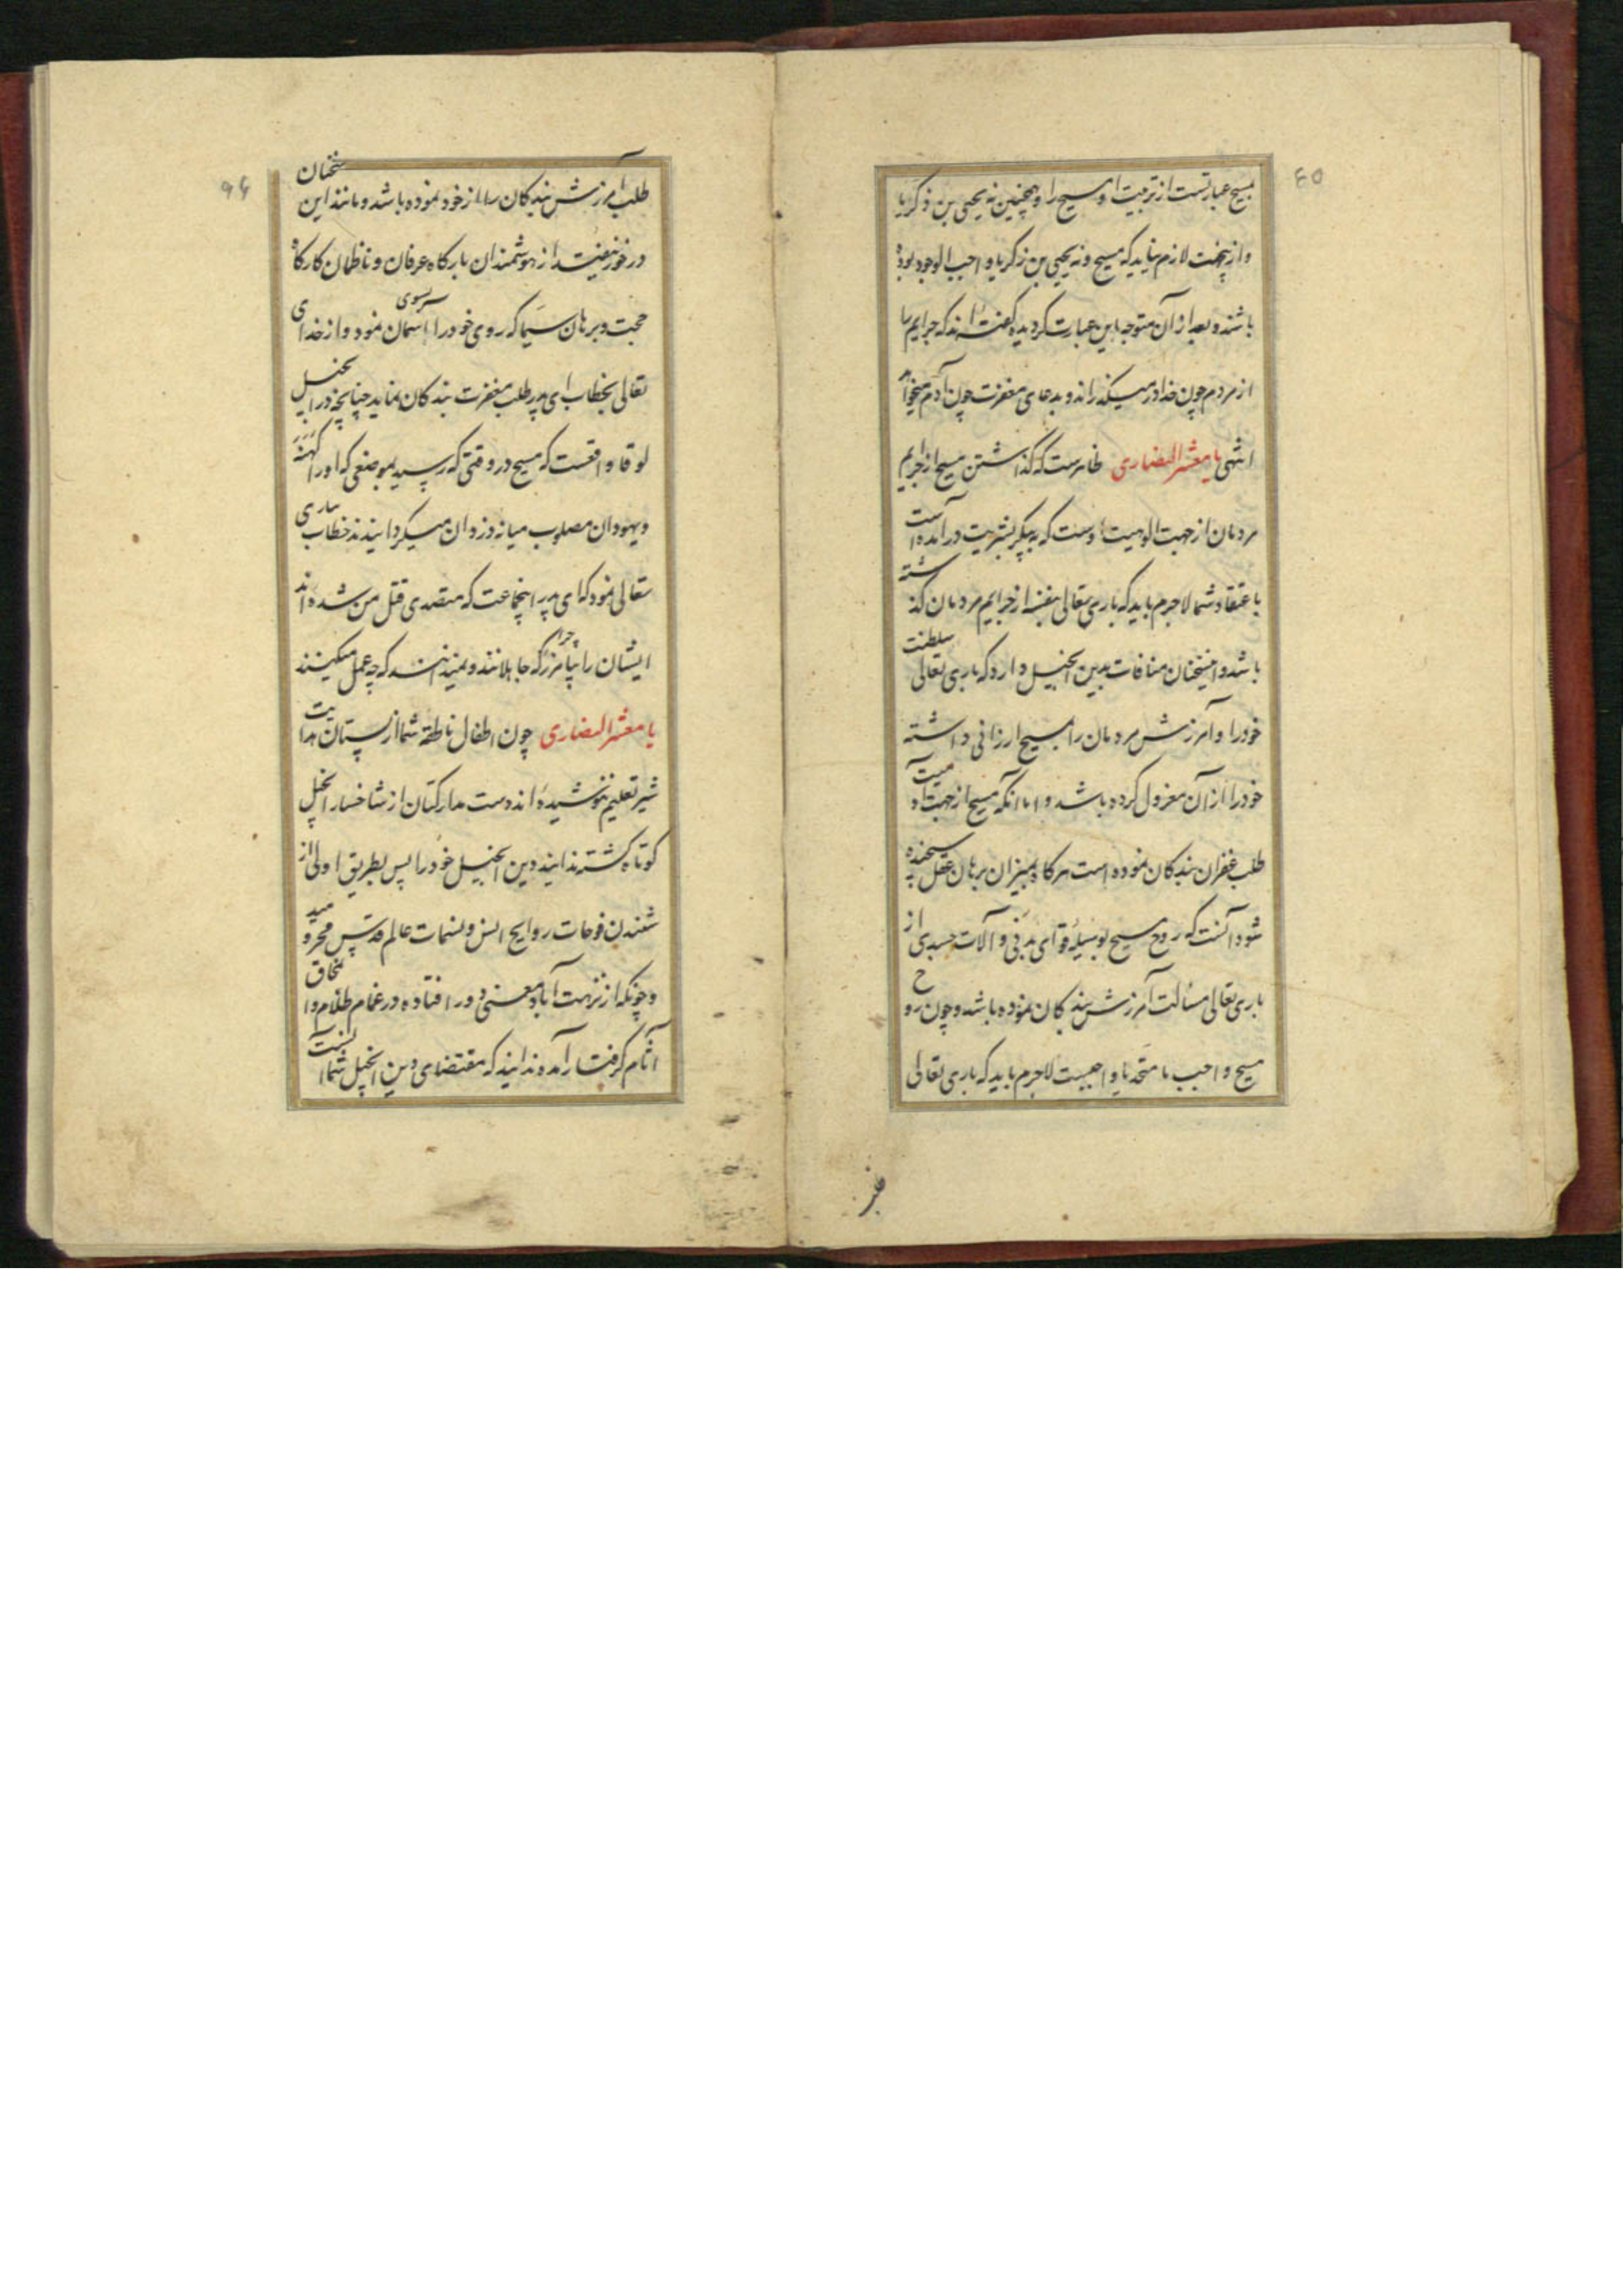 ٤٥
مسیح عبارتست از تربیت او مسیح را و همچنین نه یحیی بن زکریا
و ازینجهت لازم نیاید که مسیح و نه یحیی بن زکریا واجب الوجود بوده
باشند و بعد از آن متوجه باین عبارت کردیده کفته اند که جرایم را
از مردم چون خدا در میکذراند و بدعای مغفرت چون آدم میخواهد
انتهی یا معشر النصاری ظاهرست که کذاشتن مسیح از جرایم
مردمان از جهت الوهیت اوست که به پیکر بشریت در آمده است
باعتقاد شما لاجرم باید که باری تعالی بنفسه از جرایم مردمان کذشته
باشد و اینسخنان منافات بدین انجیل دارد که باری تعالی سلطنت
خود را و آمرزش مردمان را بمسیح ارزانی داشته
خود را از آن معزول کرده باشد و اما آنکه مسیح از جهت آدمیت
طلب غفران بندکان نموده است هرکاه بمیزان برهان عقل سنجیده
شود آنست که روح مسیح بوسیله قوای بدنی و آلات جسدی از
باری تعالی مسألت آمرزش بندکان نموده باشد و چون روح
مسیح واجب با متحد با واجبست لاجرم باید که باری تعالی
طلب
۹۶
طلب آمرزش بندکان را از خود نموده باشد و مانند این سخنان
در خور نیفتند از هوشمندان بارکاه عرفان و ناظمان کارکاه
حجت و برهان سیما که روی خود را بسوی آسمان نمود و از خدای
تعالی بخطاب ای پدر طلب مغفرت بندکان نماید چنانچه در انجیل
لوقا واقعست که مسیح در وقتی که رسید بموضعی که او را کهنه
و یهودان مصلوب میانه دزدان میکردانیدند خطاب بباری
تعالی نمود که ای پدر اینجماعت که متصدی قتل من شده اند
ایشان را بیامرز چرا که جاهلانند و نمیدانند که چه عمل میکنند
یا معشر النصاری چون اطفال ناطقه شما از پستان هدایت
شیر تعلیم ننوشیده اند و دست مدارکتان از شاخسار انجیل
کوتاه کشته ندانید دین انجیل خود را پس بطریق اولی از
شنیدن فوحات روایح انس و نسمات عالم قدس محرومید
و چونکه از نزهت آباد معنی دور افتاده در غمام ظلام و محاق
آثام کرفتار آمده ندانید که مقتضای دین انجیل شما آنست